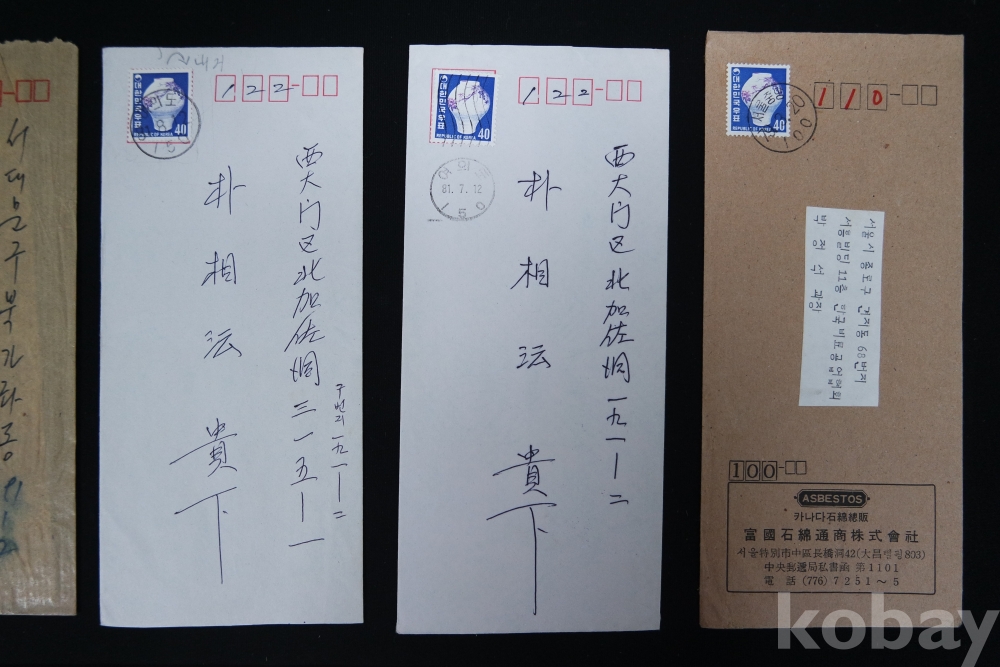 서대문구북가좌동
시내거
대한민국우표
40
REPUBLIC OF KOREA
122-
西大门区北加佐洞 三一五-一
구번지 一九一-二
朴相沄 貴下
대한민국우표
40
REPUBLIC OF KOREA
여의도
81. 7. 12
150
122-
西大门区北加佐洞 一九一-二
朴相沄 貴下
대한민국우표
40
REPUBLIC OF KOREA
100
110-
서울시 종로구 견지동 68번지
서흥빌딩 11층 한국비료공업협회
박 정 석 과장
100-
ASBESTOS
카나다石綿總販
富國石綿通商株式會社
서울特別市中區長橋洞42(大昌빌딩803)
中央郵遞局私書函 第1101
電 話 (776) 7251～5
kobay